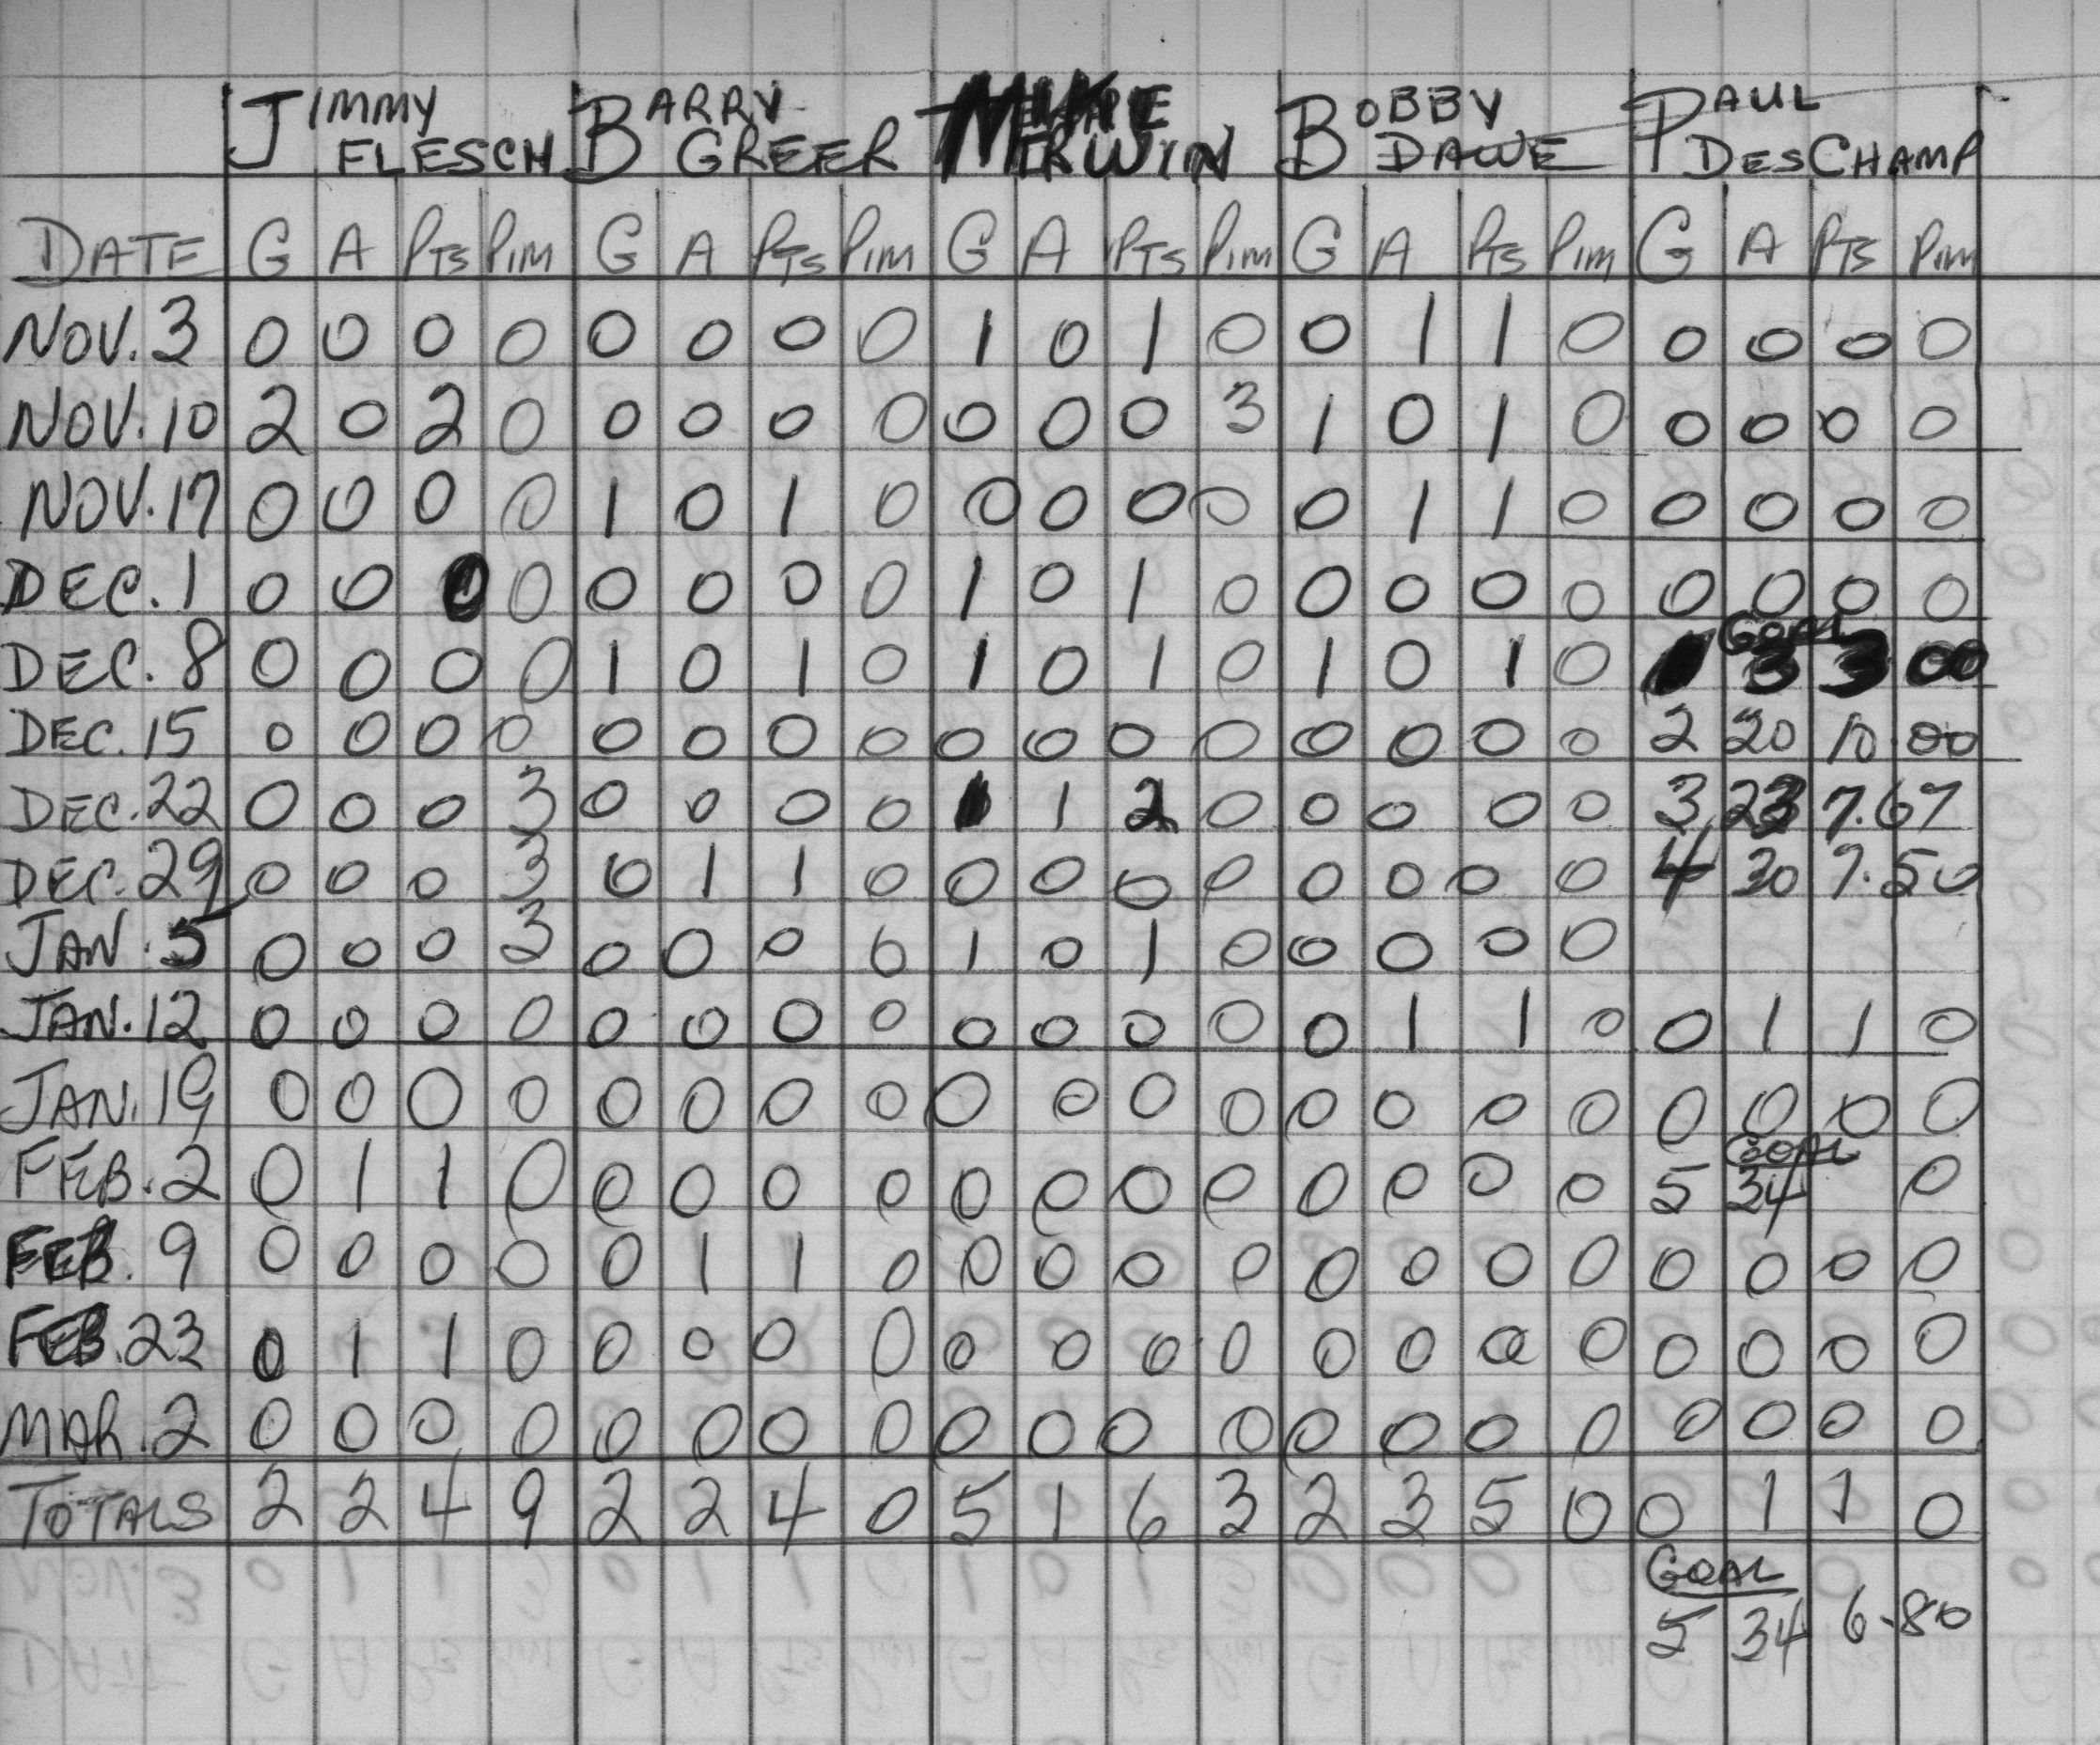 JIMMY BARRY MIKE BOBBY PAUL
FLESCH GREER IRWIN DAWE DESCHAMP
DATE G A PTS PIM G A PTS PIM G A PTS PIM G A PTS PIM G A PTS PIM
NOV. 3 0 0 0 0 0 0 0 0 1 0 1 0 0 1 1 0 0 0 0 0
NOV. 10 2 0 2 0 0 0 0 0 0 0 0 3 1 0 1 0 0 0 0 0
NOV. 17 0 0 0 0 1 0 1 0 0 0 0 0 0 1 1 0 0 0 0 0
DEC. 1 0 0 0 0 0 0 0 0 1 0 1 0 0 0 0 0 0 0 0 0
GOAL
DEC. 8 0 0 0 0 1 0 1 0 1 0 1 0 1 0 1 0 1 3 3 00
DEC. 15 0 0 0 0 0 0 0 0 0 0 0 0 0 0 0 0 2 20 10.00
DEC. 22 0 0 0 3 0 0 0 0 1 1 2 0 0 0 0 0 3 23 7.67
DEC. 29 0 0 0 3 0 1 1 0 0 0 0 0 0 0 0 0 4 30 7.50
JAN. 5 0 0 0 3 0 0 0 0 1 0 1 0 0 0 0 0
JAN. 12 0 0 0 0 0 0 0 0 0 0 0 0 0 1 1 0 0 1 1 0
JAN. 19 0 0 0 0 0 0 0 0 0 0 0 0 0 0 0 0 0 0 0 0
GOAL
FEB. 2 0 1 1 0 0 0 0 0 0 0 0 0 0 0 0 0 5 34 0
FEB. 9 0 0 0 0 0 1 1 0 0 0 0 0 0 0 0 0 0 0 0 0
FEB. 23 0 1 1 0 0 0 0 0 0 0 0 0 0 0 0 0 0 0 0 0
MAR. 2 0 0 0 0 0 0 0 0 0 0 0 0 0 0 0 0 0 0 0 0
TOTALS 2 2 4 9 2 2 4 0 5 1 6 3 2 3 5 0 0 1 1 0
GOAL
5 34 6.80